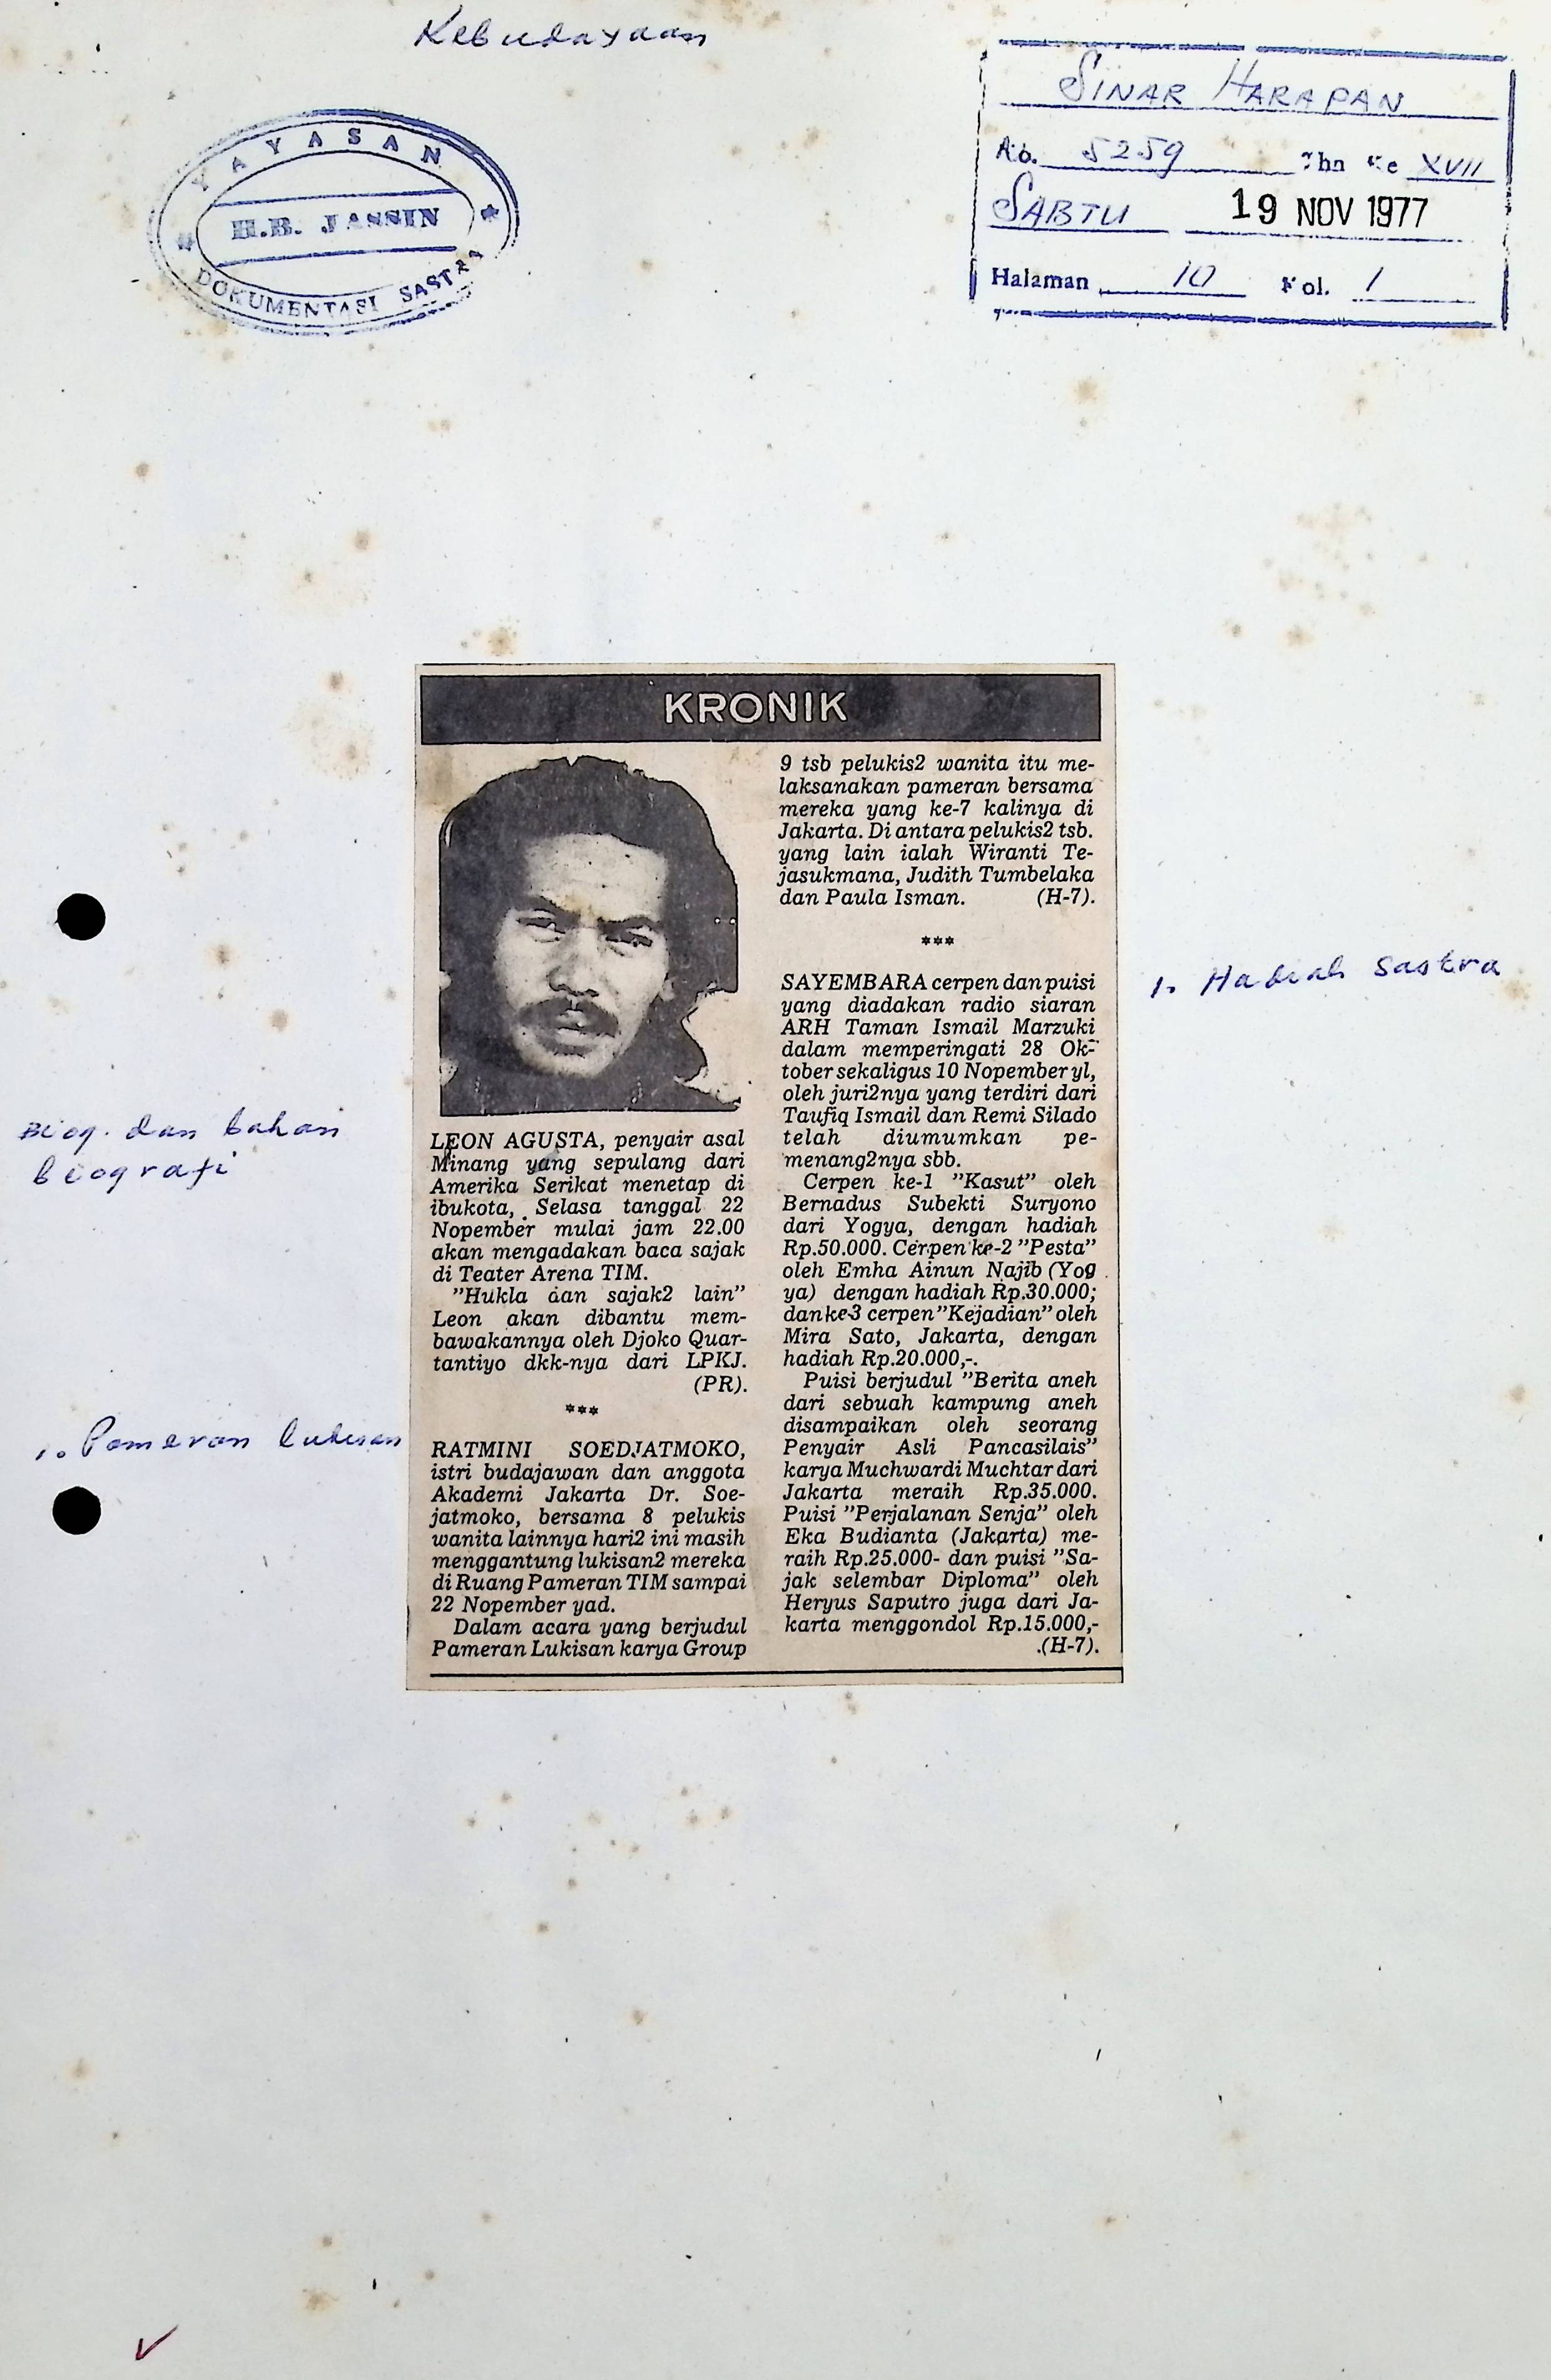 Kebudayaan
YAYASAN
H.B. JASSIN
DOKUMENTASI SASTRA
SINAR HARAPAN
No. 5259 Thn Ke XVII
SABTU 19 NOV 1977
Halaman 10 Kol. 1
KRONIK
LEON AGUSTA, penyair asal
Minang yang sepulang dari
Amerika Serikat menetap di
ibukota, Selasa tanggal 22
Nopember mulai jam 22.00
akan mengadakan baca sajak
di Teater Arena TIM.
"Hukla dan sajak2 lain"
Leon akan dibantu mem-
bawakannya oleh Djoko Quar-
tantiyo dkk-nya dari LPKJ.
(PR).
***
RATMINI SOEDJATMOKO,
istri budajawan dan anggota
Akademi Jakarta Dr. Soe-
jatmoko, bersama 8 pelukis
wanita lainnya hari2 ini masih
menggantung lukisan2 mereka
di Ruang Pameran TIM sampai
22 Nopember yad.
Dalam acara yang berjudul
Pameran Lukisan karya Group
9 tsb pelukis2 wanita itu me-
laksanakan pameran bersama
mereka yang ke-7 kalinya di
Jakarta. Di antara pelukis2 tsb.
yang lain ialah Wiranti Te-
jasukmana, Judith Tumbelaka
dan Paula Isman. (H-7).
***
SAYEMBARA cerpen dan puisi
yang diadakan radio siaran
ARH Taman Ismail Marzuki
dalam memperingati 28 Ok-
tober sekaligus 10 Nopember yl,
oleh juri2nya yang terdiri dari
Taufiq Ismail dan Remi Silado
telah diumumkan pe-
menang2nya sbb.
Cerpen ke-1 "Kasut" oleh
Bernadus Subekti Suryono
dari Yogya, dengan hadiah
Rp.50.000. Cerpen ke-2 "Pesta"
oleh Emha Ainun Najib (Yog
ya) dengan hadiah Rp.30.000;
dan ke3 cerpen "Kejadian" oleh
Mira Sato, Jakarta, dengan
hadiah Rp.20.000,-.
Puisi berjudul "Berita aneh
dari sebuah kampung aneh
disampaikan oleh seorang
Penyair Asli Pancasilais"
karya Muchwardi Muchtar dari
Jakarta meraih Rp.35.000.
Puisi "Perjalanan Senja" oleh
Eka Budianta (Jakarta) me-
raih Rp.25.000- dan puisi "Sa-
jak selembar Diploma" oleh
Heryus Saputro juga dari Ja-
karta menggondol Rp.15.000,-
.(H-7).
Biog. dan bahan
biografi
1. Pameran lukisan
1. Hadiah Sastra